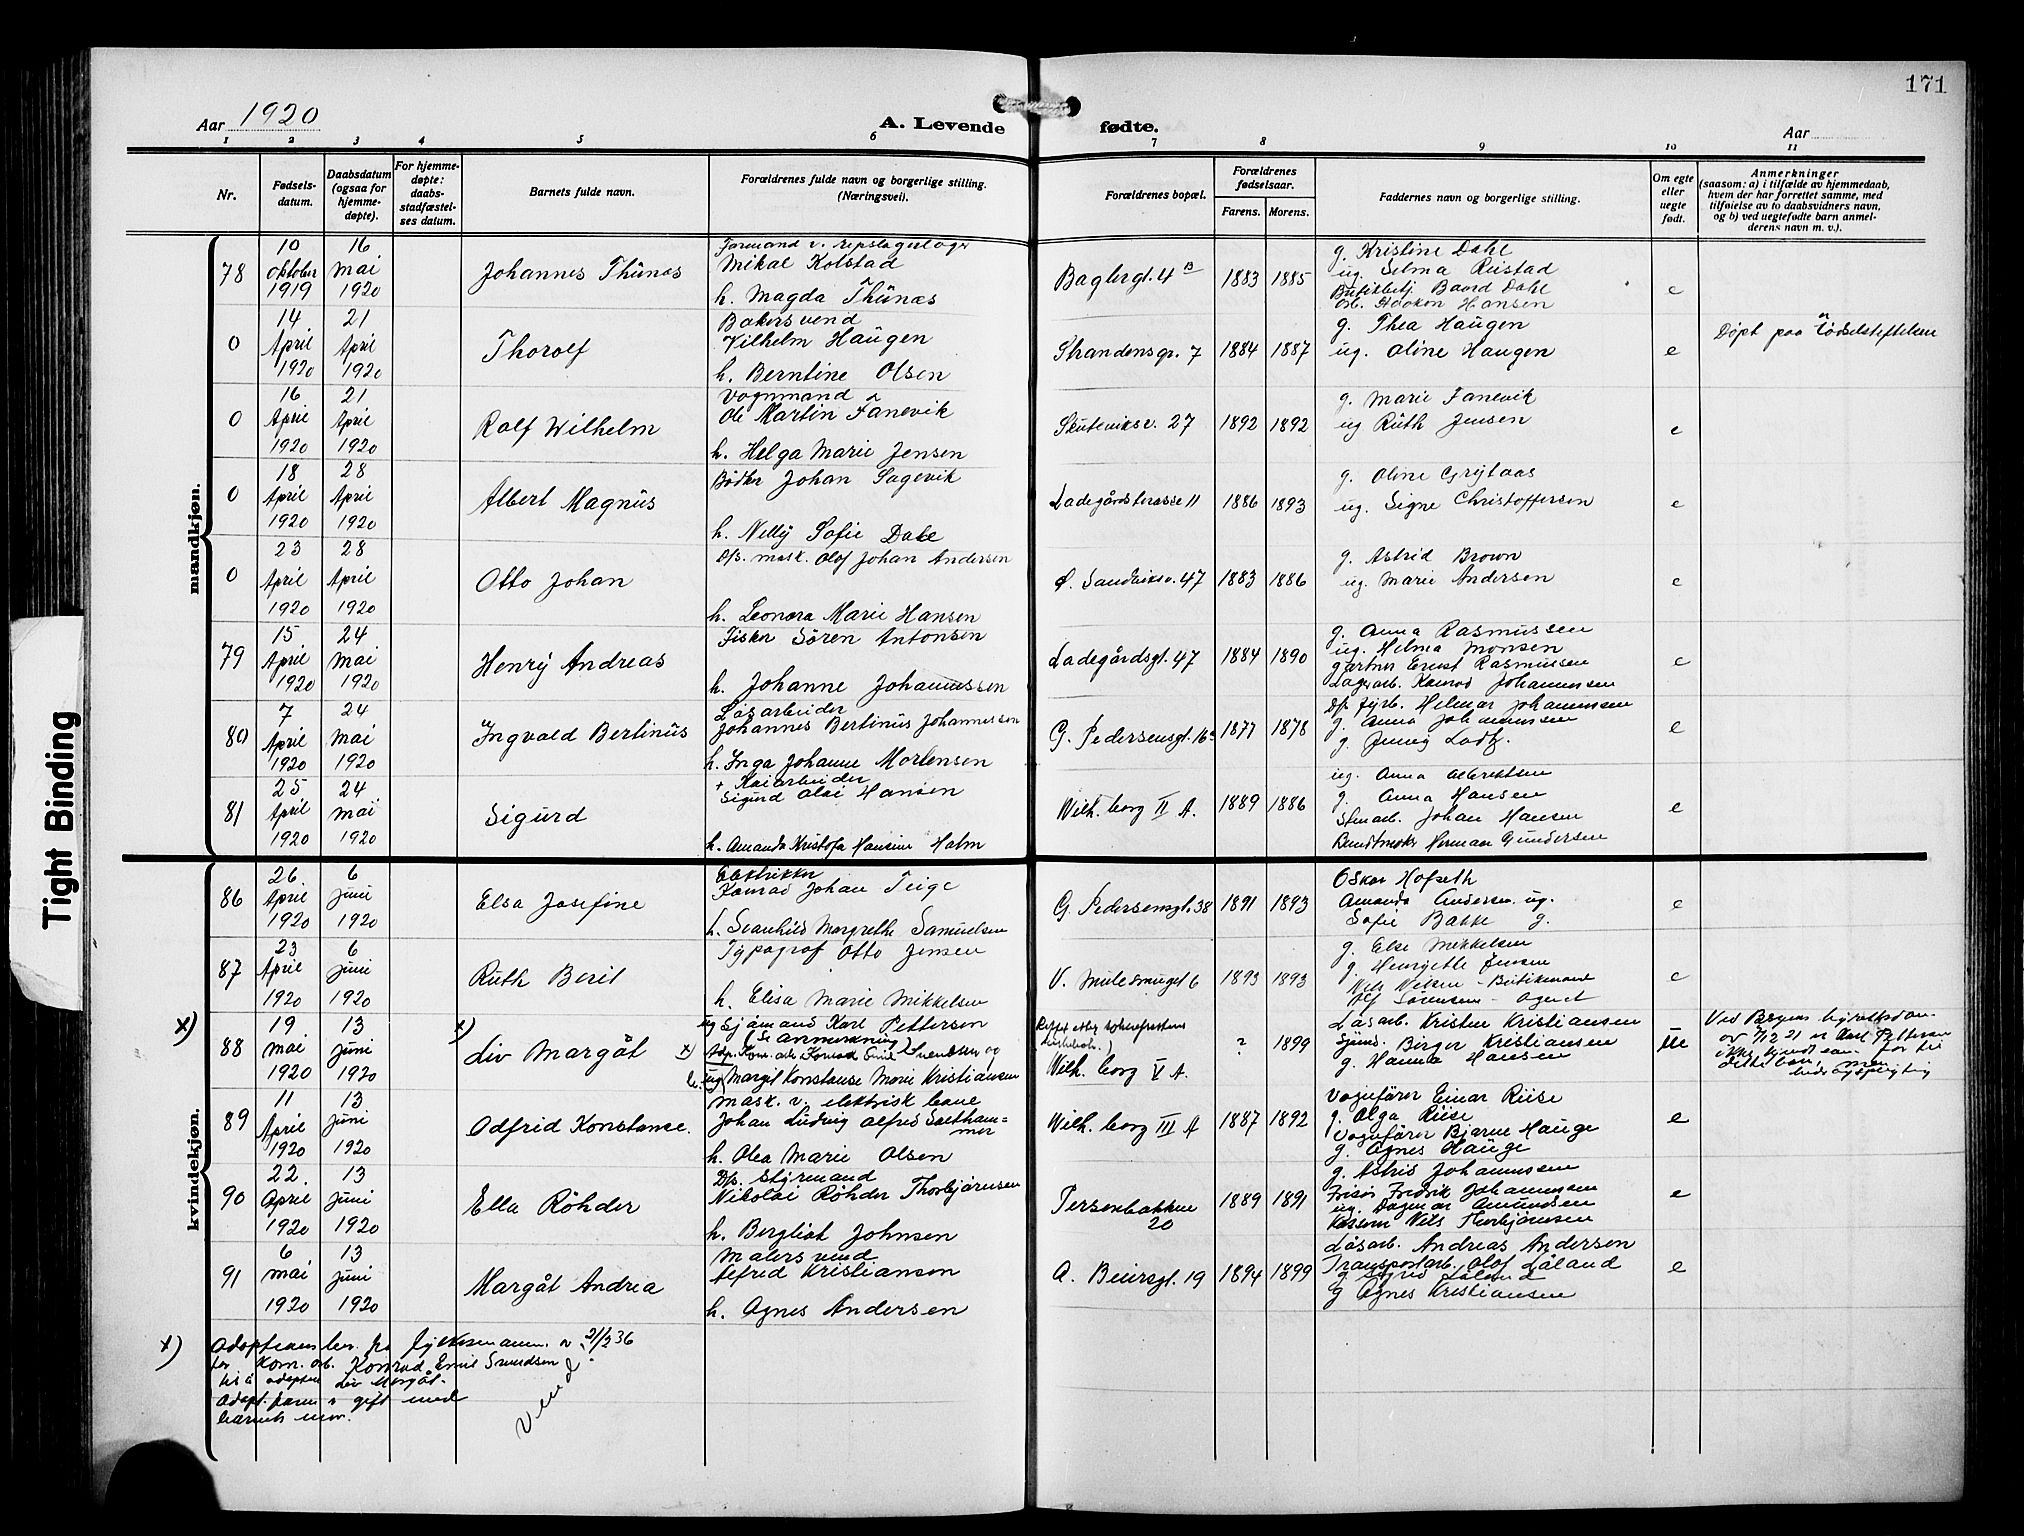 171
Aar 1920
A. Levende fødte.
Aar
1 2 3 4 5 6 7 8 9 10 11
Nr.
Fødsels-
datum.
Daabsdatum
(ogsaa for
hjemme-
døpte).
For hjemme-
døpte:
daabs-
stadfæstel-
ses datum.
Barnets fulde navn.
Forældrenes fulde navn og borgerlige stilling.
(Næringsvei).
Forældrenes bopæl.
Forældrenes
fødselsaar.
Farens. Morens.
Faddernes navn og borgerlige stilling.
Om egte
eller
uegte
født.
Anmerkninger
(saasom: a) i tilfælde av hjemmedaab,
hvem der har forrettet samme, med
tilføielse av to daabsvidners navn,
og b) ved uegtefødte barn anmel-
derens navn m. v.).
mandkjøn.
78
10 oktober 1919
16 Mai 1920
Johannes Thünæs
Formand v. repslagerlager
Mikal Kolstad
h. Magda Thünæs
Baglergt. 4 B
1883 1885
g. Kristine Dahl
ug. Selma Rustad
Butikbetj. Baard Dahl
Haakon Hansen
e
0
14 April 1920
21 April 1920
Thorolf
Bakersvend
Vilhelm Haugen
h. Berntine Olsen
Strandensgr. 7
1884 1887
g. Thea Haugen
ug. Oline Haugen
e
Døpt paa Fødselstiftelsen
0
16 April 1920
21 April 1920
Rolf Wilhelm
Vognmand
Ole Martin Fanevik
h. Helga Marie Jensen
Skuteviksv. 27
1892 1892
g. Marie Fanevik
ug Ruth Jensen
e
0
18 April 1920
28 April 1920
Albert Magnus
Bødker Johan Sagevik
h. Nelly Sofie Dale
Ladegårdsterasse 11
1886 1893
g. Oline Grytaas
ug. Signe Christoffersen
e
0
23 April 1920
28 April 1920
Otto Johan
D/s. mask. Olof Johan Andersen
h. Leonora Marie Hansen
Ø. Sandviksv. 47
1883 1886
g. Astrid Brown
ug. Marie Andersen
e
79
15 April 1920
24 Mai 1920
Henry Andreas
Fisker Søren Antonsen
h. Johanne Johannessen
Ladegårdsgt. 47
1884 1890
g. Anna Rasmussen
ug. Helma Monsen
gartner Ernst Rasmussen
Lagerarb. Konrad Johannessen
e
80
7 April 1920
24 Mai 1920
Ingvald Bertinus
Løsarbeider
Johannes Bertinus Johannessen
h. Inga Johanne Mortensen
G. Pedersensgt. 16
1877 1878
D/s fyrb. Helmar Johannessen
g. Anna Johannessen
g. Jenny
e
81
25 April 1920
24 Mai 1920
Sigurd
+ Kaiarbeider
Sigurd Olai Hansen
h. Amanda Kristofa Hansine Holm
Wilh. borg II A.
1889 1886
ug. Anna Albrektsen
g. Anna Hansen
Stenarb. Johan Hansen
Buntmaker Herman Gundersen
e
kvindekjøn.
86
26 April 1920
6 Juni 1920
Elsa Josefine
Elektriker
Konrad Johan Teige
h. Svanhild Margrethe Samuelsen
G. Pedersensgt. 38
1891 1893
Oskar Hofseth
Amanda Andersen ug.
Sofie Bakke g.
e
87
23 April 1920
6 Juni 1920
Ruth Beril
Typograf Otto Jensen
h. Elisa Marie Mikkelsen
V. Mulesmuget 6
1893 1893
g. Else Mekkelsen
g. Henryette Jensen
Nils Nilsen - Butikmand
Alf Sørensen - Agent
e
x)
88
19 Mai 1920
13 Juni 1920
x)
Liv Margåt
ug Sjømand Karl Pettersen
(Se anmerkning)
x) Adp. Kom. arb. Konrad Emil Svendsen og
h. ug Margit Konstanse Marie Kristiansen
Wilh. borg V A.
? 1899
Løsarb. Kristen Kristiansen
Sjømd. Birger Kristiansen
g. Hanna Hansen
ue
Ved Bergens byretsdom
av 7/12 21 er Karl Pettersen
ikke kjendt som far til
dette barn, men
bidragspligtig
89
11 April 1920
13 Juni 1920
Odfrid Konstanse.
Mask. v. elektrisk bane
Johan Ludvig Alfred Sælhammer
h. Olea Marie Olsen
Wilh. borg III A
1887 1892
Vognfører Einar Riise
g. Olga Riise
Vognfører Bjarne Hauge
g. Agnes Hauge
e
90
22. April 1920
13 Juni 1920
Ella Röhder
D/s. Styrmand
Nikolai Röhder Thorbjörnsen
h. Bergliot Johnsen
Persenbakken 20
1889 1891
g. Astrid Johannessen
Frisör Fredrik Johannessen
ug. Dagmar Amundsen
Nils Thorbjörnsen
e
91
6 Mai 1920
13 Juni 1920
Margåt Andrea
Malersvend
Alfred Kristiansen
h. Agnes Andersen
A. Beiersgt. 19
1894 1899
Løsarb. Andreas Andersen
Transportarb. Olof Låland
g Låland
g Agnes Kristiansen
e
x)
Adopt. fra fylkesmannen v. 21/2 36
for kom. arb. Konrad Emil Svendsen
til å adoptere Liv Margåt.
Adopt. faren er gift med
barnets mor.
Vend
Tight Binding